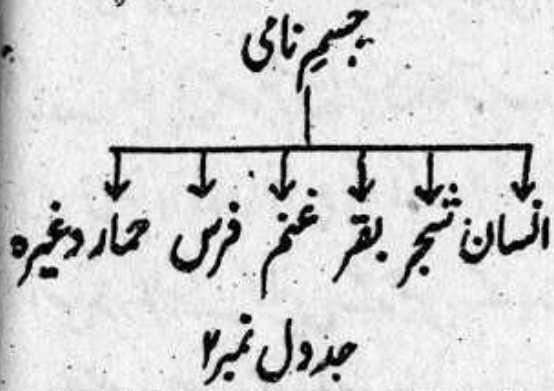 جسمِ نامی
انسان شجر بقر غنم فرس حمار وغیرہ
جدول نمبر ۲